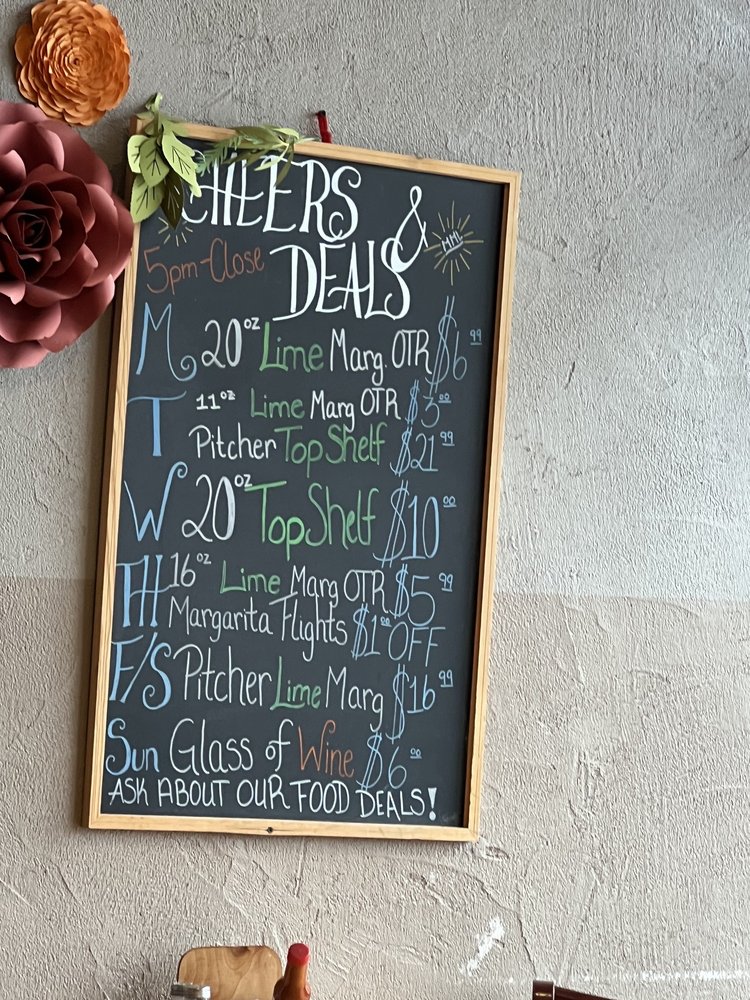 CHEERS &
5pm-Close DEALS MHL
M 20oz Lime Marg. OTR $6.99
T 11oz Lime Marg OTR $3.00
Pitcher Top Shelf $21.99
W 20oz Top Shelf $10.00
TH 16oz Lime Marg OTR $5.99
Margarita Flights $1.00 OFF
F/S Pitcher Lime Marg $16.99
Sun Glass of Wine $6.00
ASK ABOUT OUR FOOD DEALS!